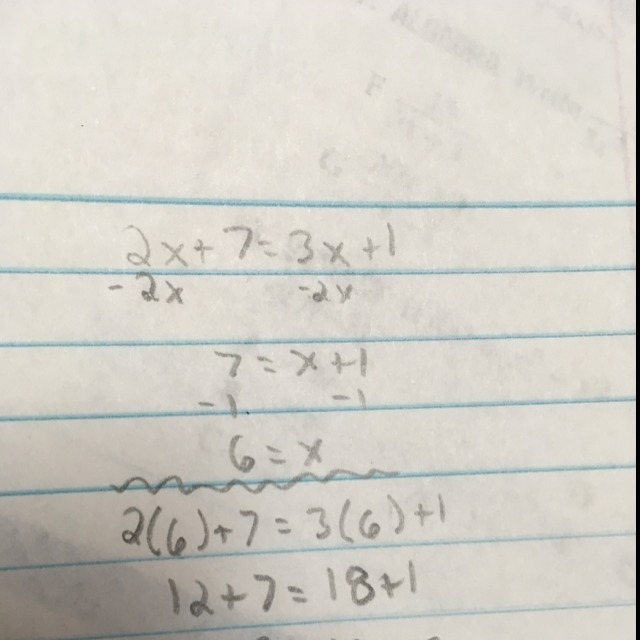 2x+7=3x+1
-2x -2x
7=x+1
-1 -1
6=x
2(6)+7=3(6)+1
12+7=18+1